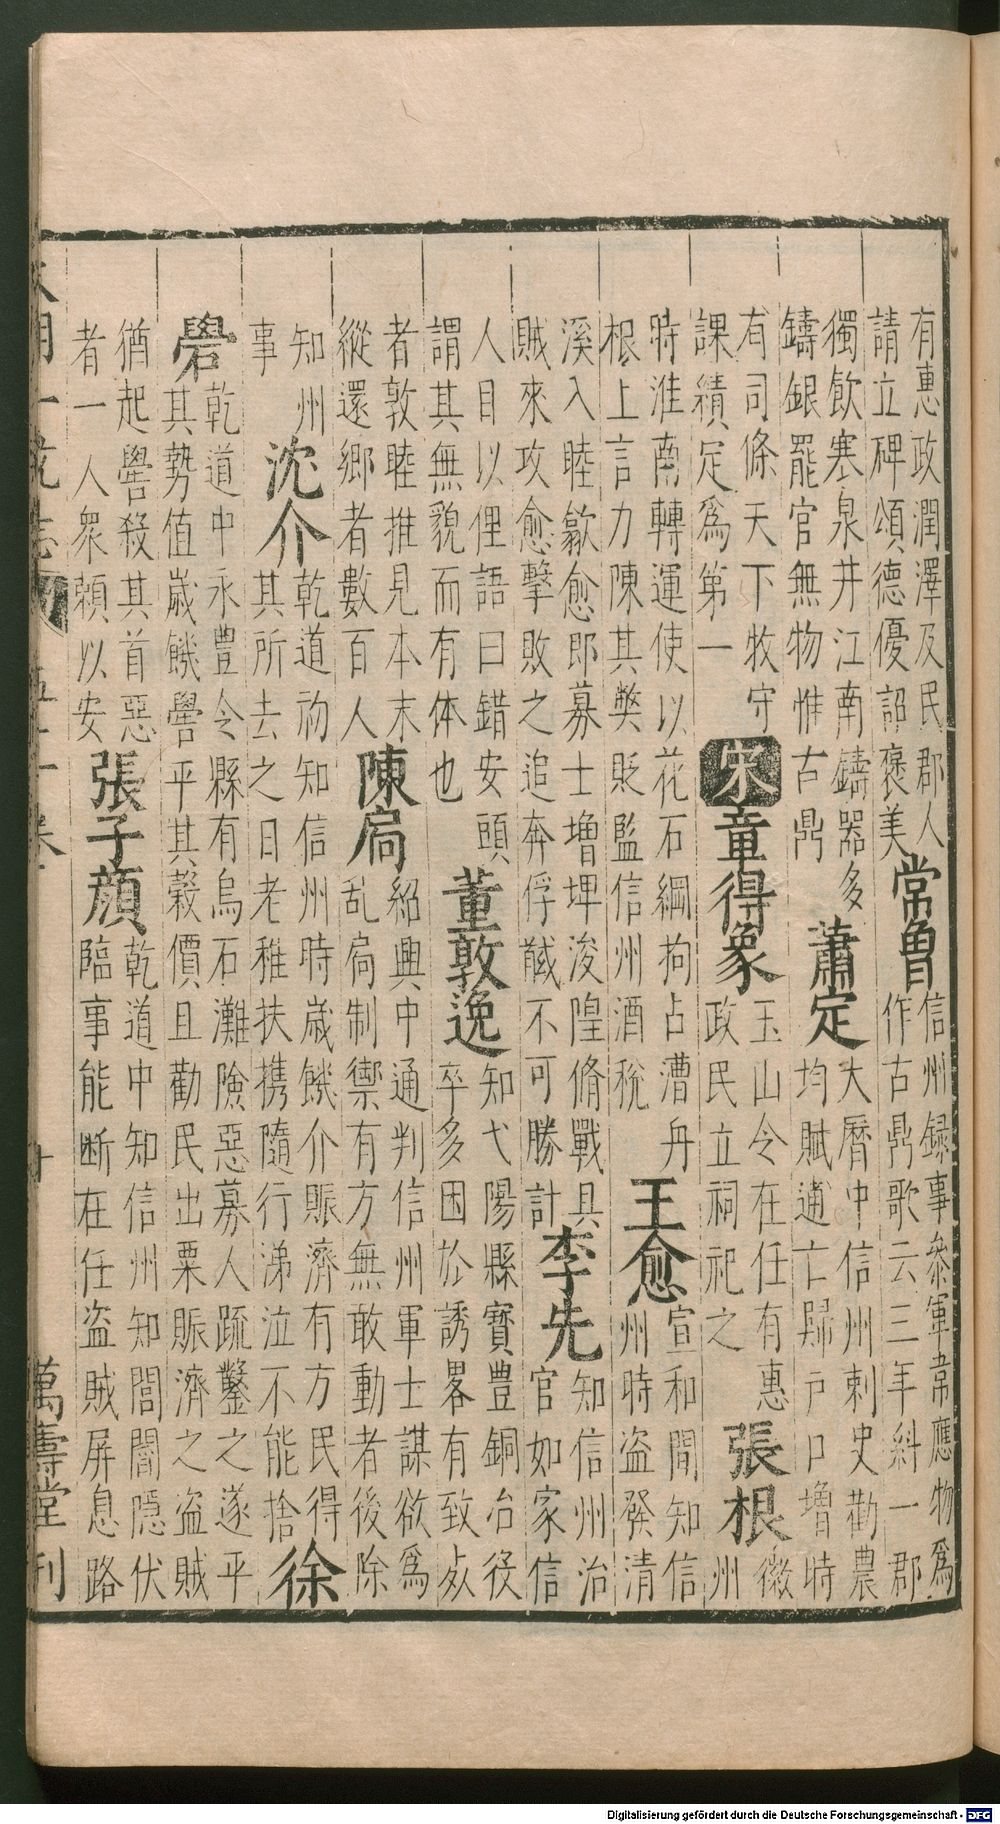 有惠政潤澤及民郡人
請立碑頌德優詔褒美
常魯
信州録事參軍韋應物爲
作古鼎歌云三年糾一郡
獨飲寒泉井江南鑄器多
鑄銀罷官無物惟古鼎
蕭定
大曆中信州刺史勸農
均賦逋亡歸戶口增時
有司條天下牧守
課績定爲第一
宋
章得象
玉山令在任有惠
政民立祠祀之
張根
徽
州
時淮南轉運使以花石綱拘占漕舟
根上言力陳其弊貶監信州酒稅
王愈
宣和間知信
州時盜發清
溪入睦歙愈即募士增埤浚隍脩戰具
賊來攻愈擊敗之追奔俘馘不可勝計
李先
知信州治
官如家信
人目以俚語曰錯安頭
謂其無貌而有体也
董敦逸
知弋陽縣寶豊銅冶役
卒多困於誘畧有致死
者敦睦推見本末
縱還鄉者數百人
陳扃
紹興中通判信州軍士謀欲爲
亂扃制禦有方無敢動者後除
知州
事
沈介
乾道初知信州時歲饑介賑濟有方民得
其所去之日老稚扶携隨行涕泣不能捨
徐
礐
乾道中永豊令縣有烏石灘險惡募人疏鑿之遂平
其勢值歲饑礐平其穀價且勸民出粟賑濟之盜賊
猶起礐殺其首惡
者一人衆賴以安
張子顔
乾道中知信州知閭閻隱伏
臨事能断在任盜賊屏息路
大明一統志
五十一卷
十
萬壽堂刊
Digitalisierung gefördert durch die Deutsche Forschungsgemeinschaft - DFG